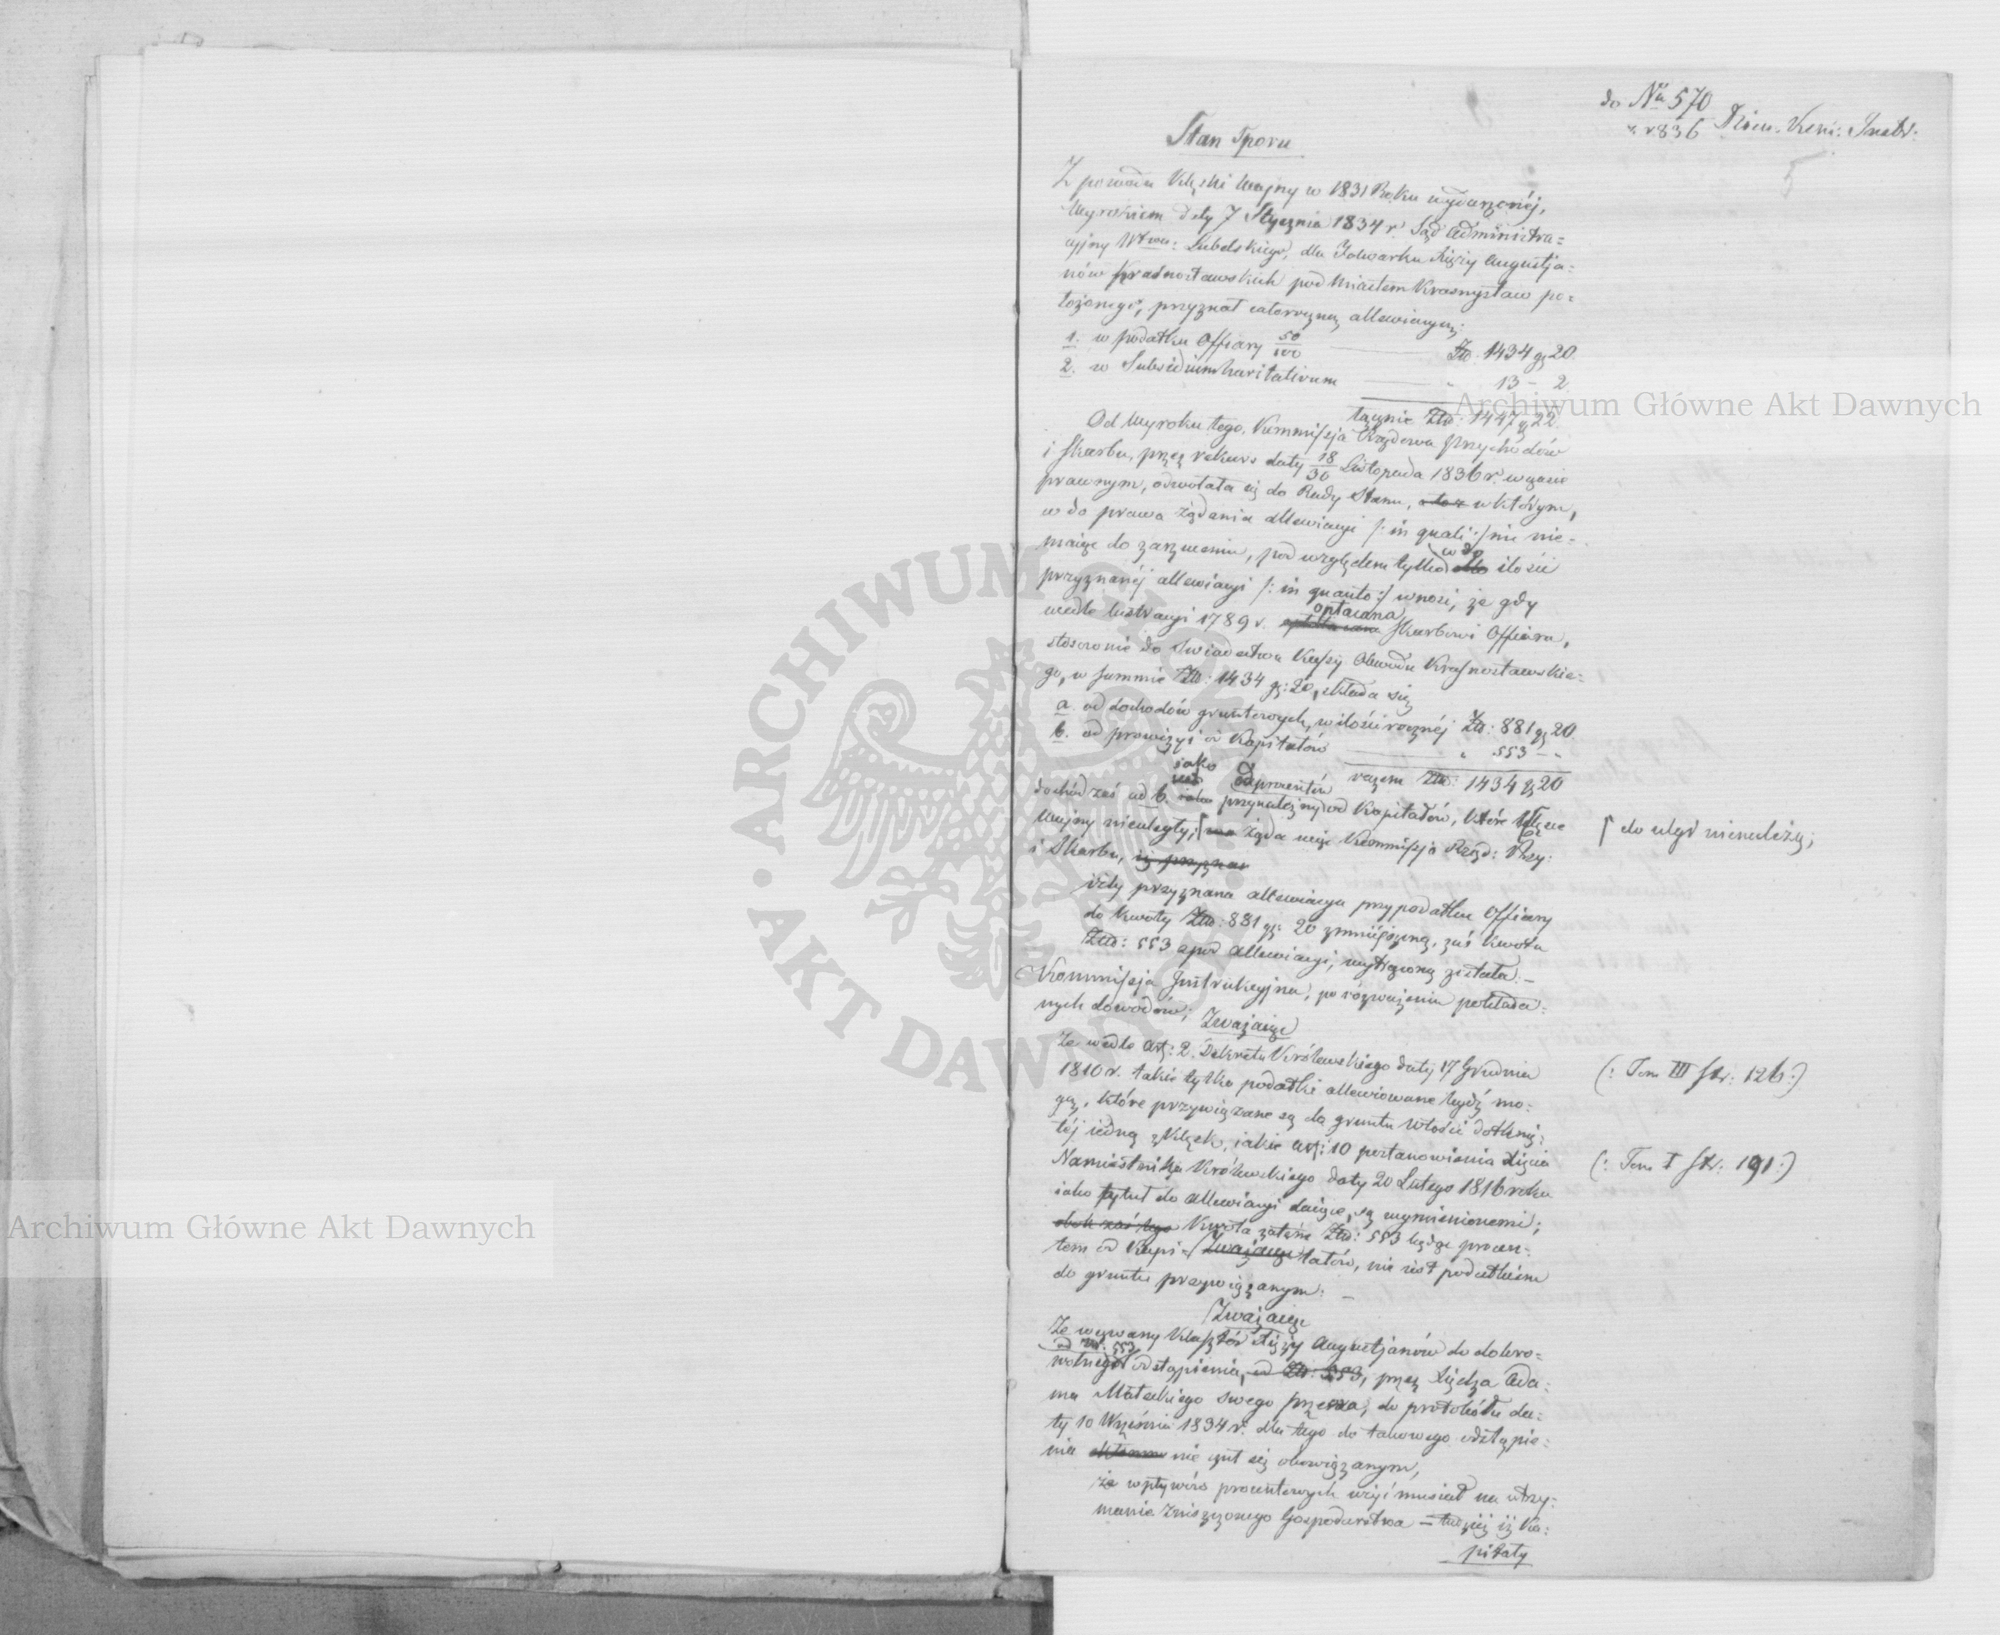 do Nru 570 Dzien. Kom: Instr:
r. 1836
5
Stan Sporu
Z powodu klęski Wojny w 1831 Roku wydarzonéj,
Wyrokiem daty 7 Stycznia 1834 r. Sąd Administra=
cyjny Wtwa: Lubelskiego, dla Folwarku Xięży Augustja=
nów Krasnostawskich pod Miastem Krasnystaw po=
łożonego, przyznał całoroczną allewiacyą;
1. w podatku Offiary 50/100 Złp. 1434 gr 20.
2. w Subsidium charitativum " 13 – 2
łącznie Złp: 1447 gr 22.
Od Wyroku tego, Kommissja Rządowa Przychodów
i Skarbu, przez rekurs daty 18/30 Listopada 1836 r. w czasie
prawnym, odwołała się do Rady Stanu, w którym,
co do prawa żądania allewiacyi /: in quali :/ nic nie=
maiąc do zarzucenia, pod względem tylko co do ilości
przyznanéj allewiacyi /: in quanto :/ wnosi, że gdy
wedle lustracyi 1789 r. opłacana Skarbowi Offiara,
stosownie do Świadectwa Kassy Obwodu Krasnostawskie=
go, w summie Złp: 1434 gr: 20, składa się
a. od dochodów gruntowych, w ilości rocznéj Złp: 881 gr 20
b. od prowizyi od Kapitałów " 553 – -
razem Złp: 1434 gr 20
dochód zaś ad b. jako od procentów przynależny od Kapitałów, które klęsce
Wojny nieuległy, żąda więc Kommissja Rząd: Przy:
⌈ do ulgi nienależy;
i Skarbu, iż przyzna
iżby przyznana allewiacya przy podatku Offiary
do kwoty Złp: 881 gr: 20 zmniejszoną, zaś kwota
Złp: 553 z pod allewiacyi, wytrąconą została. –
Kommissja Instrukcyjna, po rozważeniu pokłada=
nych dowodów;
Zważaiąc
Że wedle Art: 2. Dekretu Królewskiego daty 17 Grudnia
(: Tom III Str: 126 :)
1810 r. takie tylko podatki allewiowane bydź mo=
gą, które przywiązane są do gruntu włości dotknię=
téj iedną z klęsk, iakie Art: 10 postanowienia Xięcia
(: Tom I Str: 191 :)
Namiestnika Królewskiego daty 20 Lutego 1816 roku
iako tytuł do allewiacyi daiące, są wymienionemi;
Kwota zatém Złp: 553 będąc procen=
tem od Kapi=/ Zważaiąc /tałów, nie iest podatkiem
do gruntu przywiązanym. –
/Zważaiąc
Że wezwany Klasztór Xięży Augustjanów do dobro=
od Złp: 553
wolnego odstąpienia, od Złp: 553, przez Xiędza Ada=
ma Małeckiego swego przeora, do protokółu da=
ty 10 Września 1834 r. dla tego do takowego odstąpie=
nia nie czuł się obowiązanym,
że wpływów procentowych użyć musiał na utrzy=
manie zniszczonego Gospodarstwa – tudzież iż Ka=
pitały
ARCHIWUM GŁÓWNE AKT DAWNYCH
Archiwum Główne Akt Dawnych
Archiwum Główne Akt Dawnych